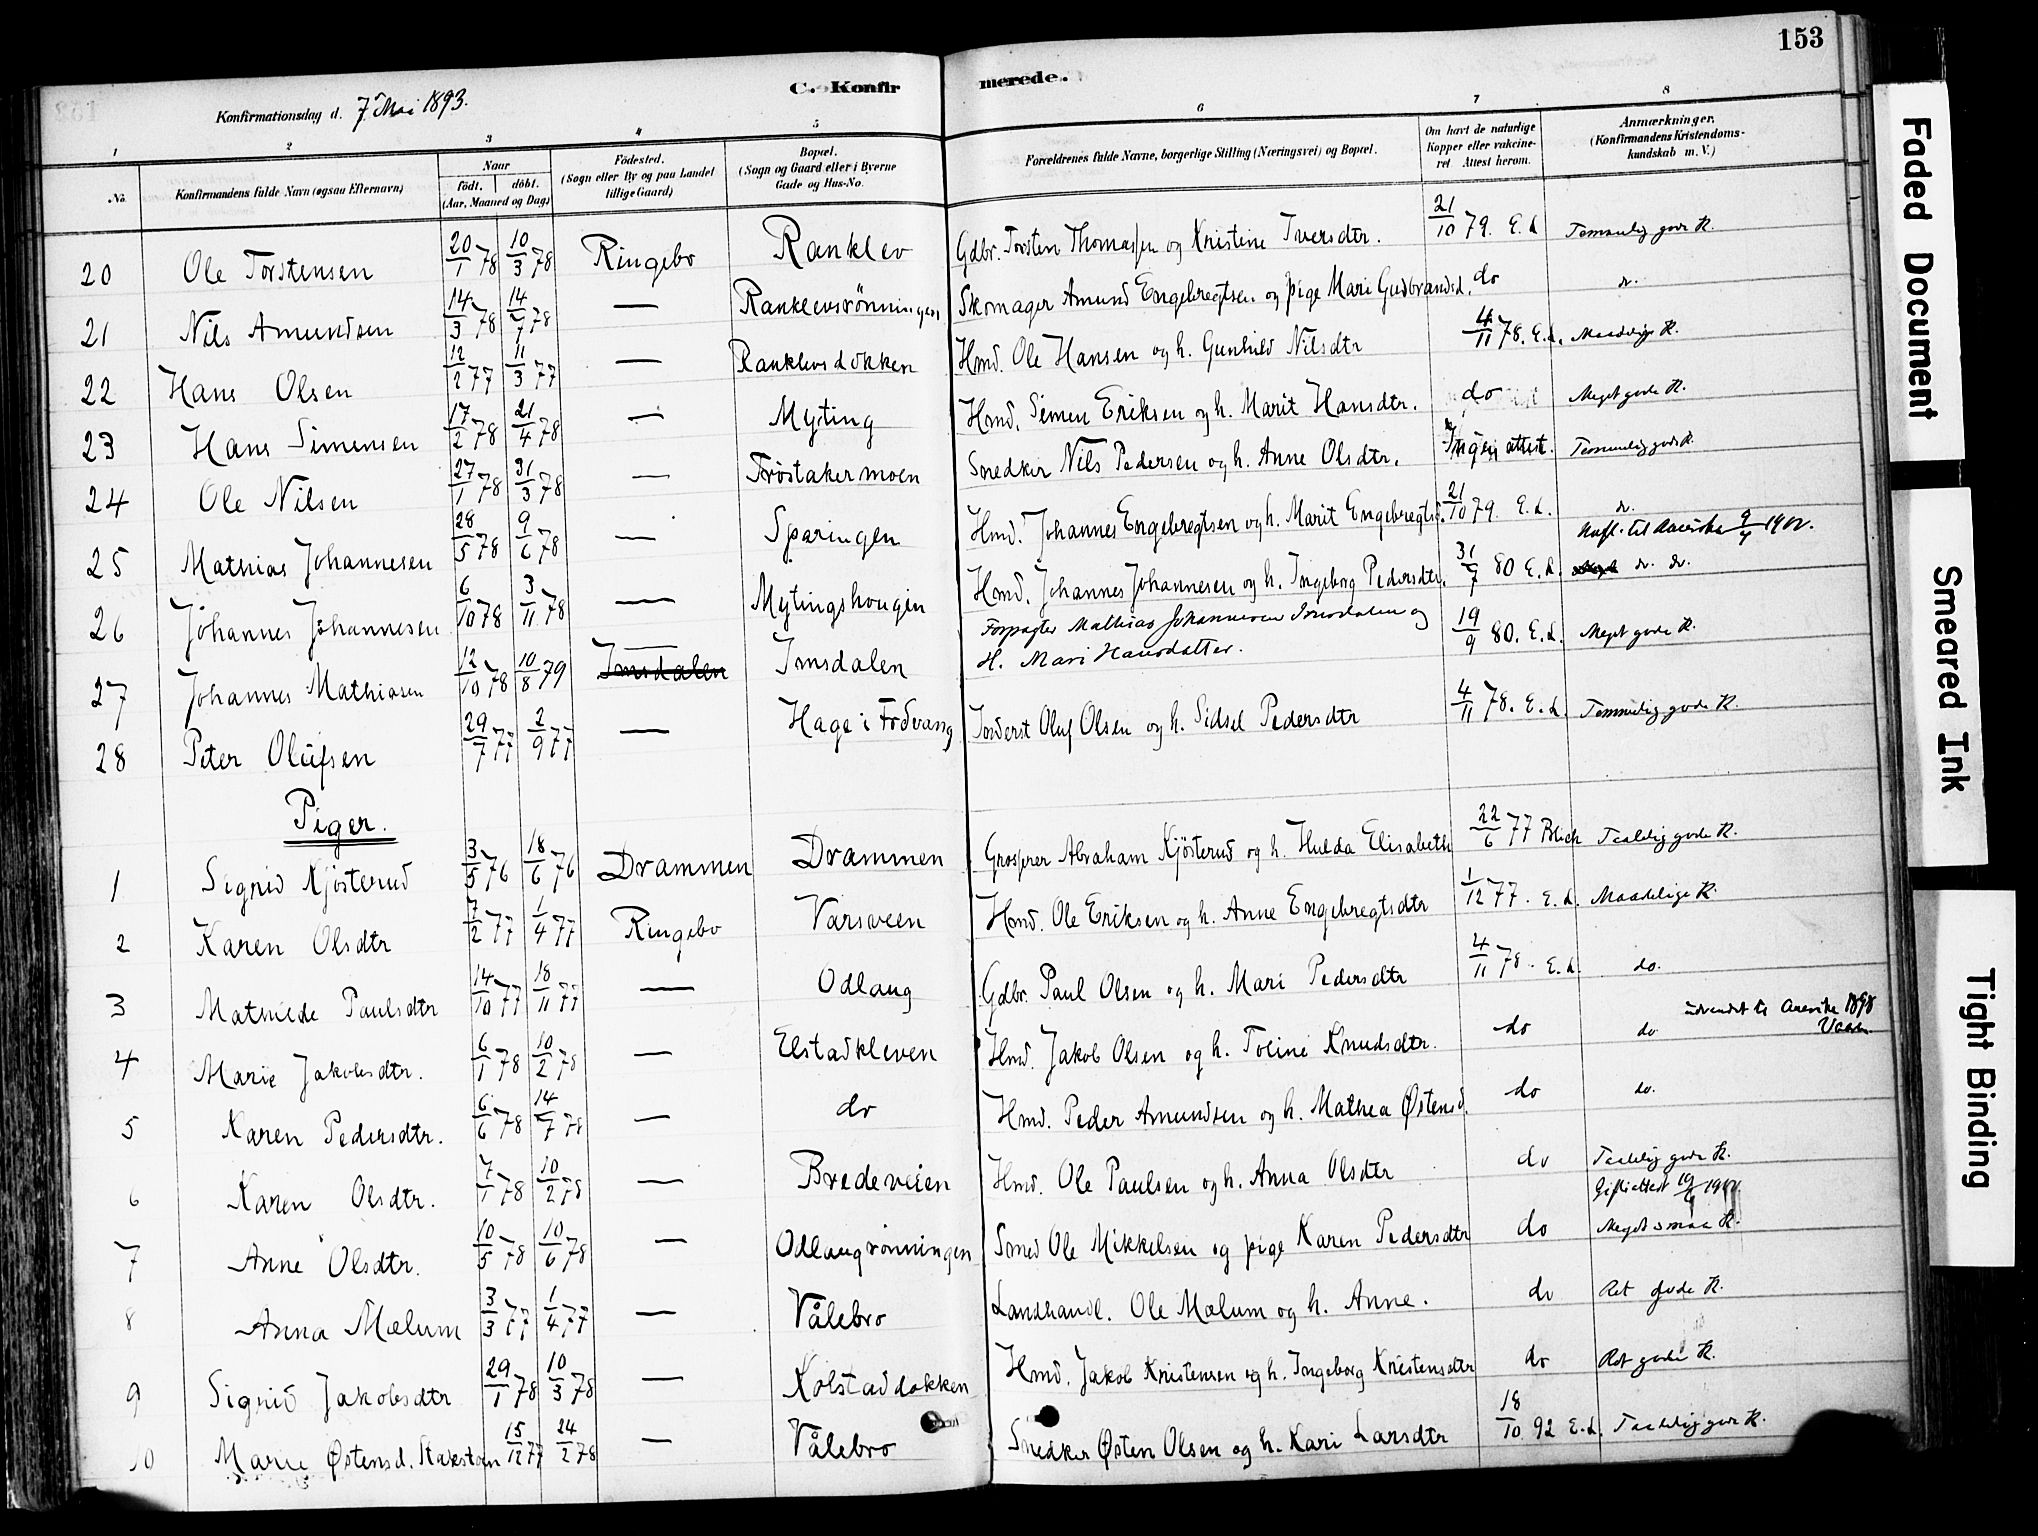 153
C. Konfirmerede.
Konfirmationsdag d. 7 Mai 1893.
1 2 3 4 5 6 7 8
No. Konfirmandens fulde Navn (ogsaa Efternavn) Naar født. døbt. (Aar, Maaned og Dag) Fødested. (Sogn eller By og paa Landet tillige Gaard) Bopæl. (Sogn og Gaard eller i Byerne Gade og Hus-No. Forældrenes fulde Navne, borgerlige Stilling (Næringsvei) og Bopæl. Om havt de naturlige Kopper eller vakcineret. Attest herom. Anmærkninger. (Konfirmandens Kristendomskundskab m. V.)
20 Ole Torstensen 20/1 78 10/3 78 Ringebo Ranklev Gdbr. Torsten Thomassen og Kristine Iversdtr. 21/10 79. E. L. Temmelig gode K.
21 Nils Amundsen 14/3 78 14/7 78 — Ranklevsrönningen Skomager Amund Engebregtsen og pige Mari Gudbrandsd. do do.
22 Hans Olsen 12/2 77 11/3 77 — Ranklevsdokken Hmd. Ole Hansen og h. Gunhild Nilsdtr 4/11 78. E. L. Maadelige K.
23 Hans Simensen 17/2 78 21/4 78 — Myting Hmd. Simen Eriksen og h. Marit Hansdtr. do Meget gode K.
24 Ole Nilsen 27/1 78 31/3 78 — Fröstakermoen Snedker Nils Pedersen og h. Anne Olsdtr. Ingen attest. Temmelig gode K.
25 Mathias Johannesen 28/5 78 9/6 78 — Sparingen Hmd. Johannes Engebregtsen og h. Marit Engebregtsd. 21/10 79. E. L. do.
til Amerika 1902.
26 Johannes Johannesen 6/10 78 3/11 78 — Mytingshougen Hmd. Johannes Johannesen og h. Ingeborg Pedersdtr. 31/7 80 E. L. do. do.
27 Johannes Mathiasen 12/10 78 10/8 79 — Imsdalen Imsdalen Forpagter Mathias Johannesen Imsdalen og
H. Mari Hansdatter. 19/9 80. E. L. Meget gode K.
28 Peter Olufsen 29/7 77 2/9 77 — Hage i Fodvang Inderst Oluf Olsen og h. Sidsel Pedersdtr 4/11 78. E. L. Temmelig gode K.
Piger.
1 Sigrid Kjösterud 3/5 76 18/6 76 Drammen Drammen Grosserer Abraham Kjösterud og h. Hulda Elisabeth 22/6 77 Blich Taalelig gode K.
2 Karen Olsdtr 7/2 77 1/4 77 Ringebo Varsveen Hmd. Ole Eriksen og h. Anne Engebregtsdtr 1/12 77. E. L. Maadelige K.
3 Mathilde Paulsdtr 14/10 77 18/11 77 — Odlaug Gdbr. Paul Olsen og h. Mari Pedersdtr 4/11 78. E. L. do.
udvandret til Amerika 1898
4 Marie Jakobsdtr. 6/1 78 10/2 78 — Elstadkleven Hmd. Jakob Olsen og h. Toline Knudsdtr. do do
5 Karen Pedersdtr. 6/6 78 14/7 78 — do Hmd. Peder Amundsen og h. Mathea Østensd. do do.
6 Karen Olsdtr. 7/1 78 10/2 78 — Bredeveien Hmd. Ole Paulsen og h. Anna Olsdtr do Taalelig gode K.
Gifteattest
7 Anne Olsdtr. 10/5 78 10/6 78 — Odlaugrönningen Smed Ole Mikkelsen og pige Karen Pedersdtr do Meget smaa K.
8 Anna Mælum 3/3 77 1/4 77 — Vålebro Landhandl. Ole Mælum og h. Anne. do Ret gode K.
9 Sigrid Jakobsdtr 29/1 78 10/3 78 — Kolstaddokken Hmd. Jakob Kristensen og h. Ingeborg Kristensdtr do Ret gode K.
10 Marie Østensd. Stakston 15/12 77 24/2 78 — Vålebro Snedker Østen Olsen og h. Kari Larsdtr 18/10 92 E. L. Taalelig gode K.
Faded Document
Smeared Ink
Tight Binding